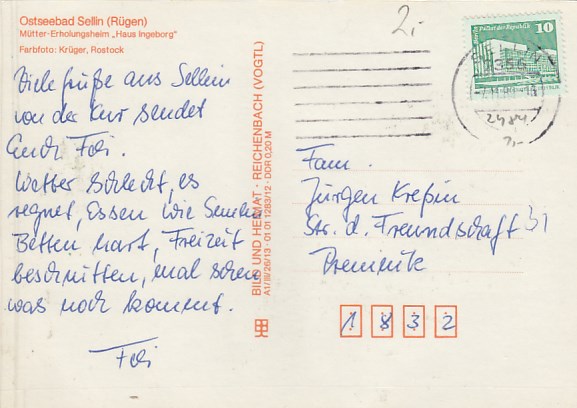 Ostseebad Sellin (Rügen)
Mütter-Erholungsheim „Haus Ingeborg"
Farbfoto: Krüger, Rostock
2,-
10
Viele Grüße aus Sellin
von der Kur sendet
Euch
Wetter schlecht, es
regnet, Essen wie
Betten hart, Freizeit
beschnitten, mal sehen
was noch kommt.
BILD UND HEIMAT · REICHENBACH (VOGTL)
A1/III/26/13 · 01 01 1283/12 · DDR 0,20 M
SELLIN
2355
2484
Fam.
Jürgen Kreßin
Str. d. Freundschaft 31
1832